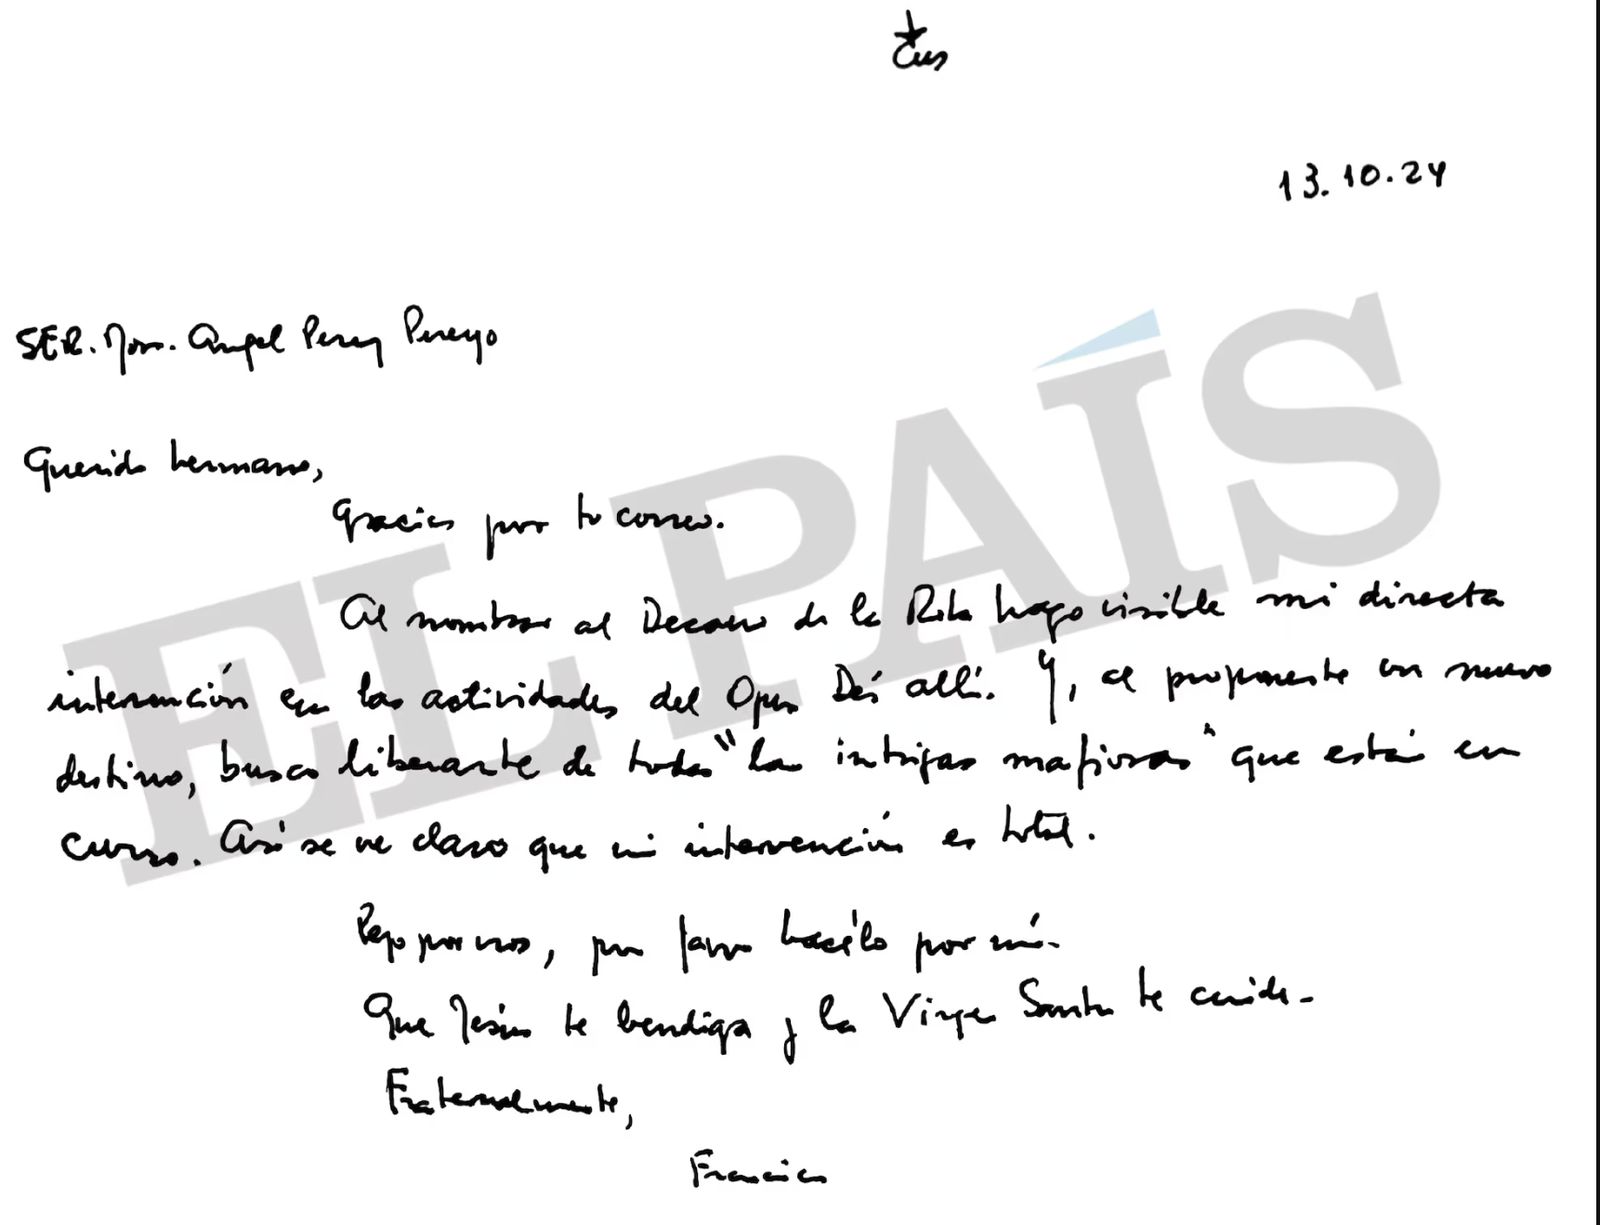 13.10.24
SER. Mons. Angel Perez Pueyo
Querido hermano,
Gracias por tu correo.
Al nombrar al Decano de la Rota hago visible mi directa
intervención en las actividades del Opus Dei allí. Y, al proponerte un nuevo
destino, busco liberarte de todas "las intrigas mafiosas" que están en
curso. Así se ve claro que mi intervención es total.
Rezo por vos, por favor hacélo por mí.
Que Jesús te bendiga y la Virgen Santa te cuide.
Fraternalmente,
Francisco
EL PAÍS